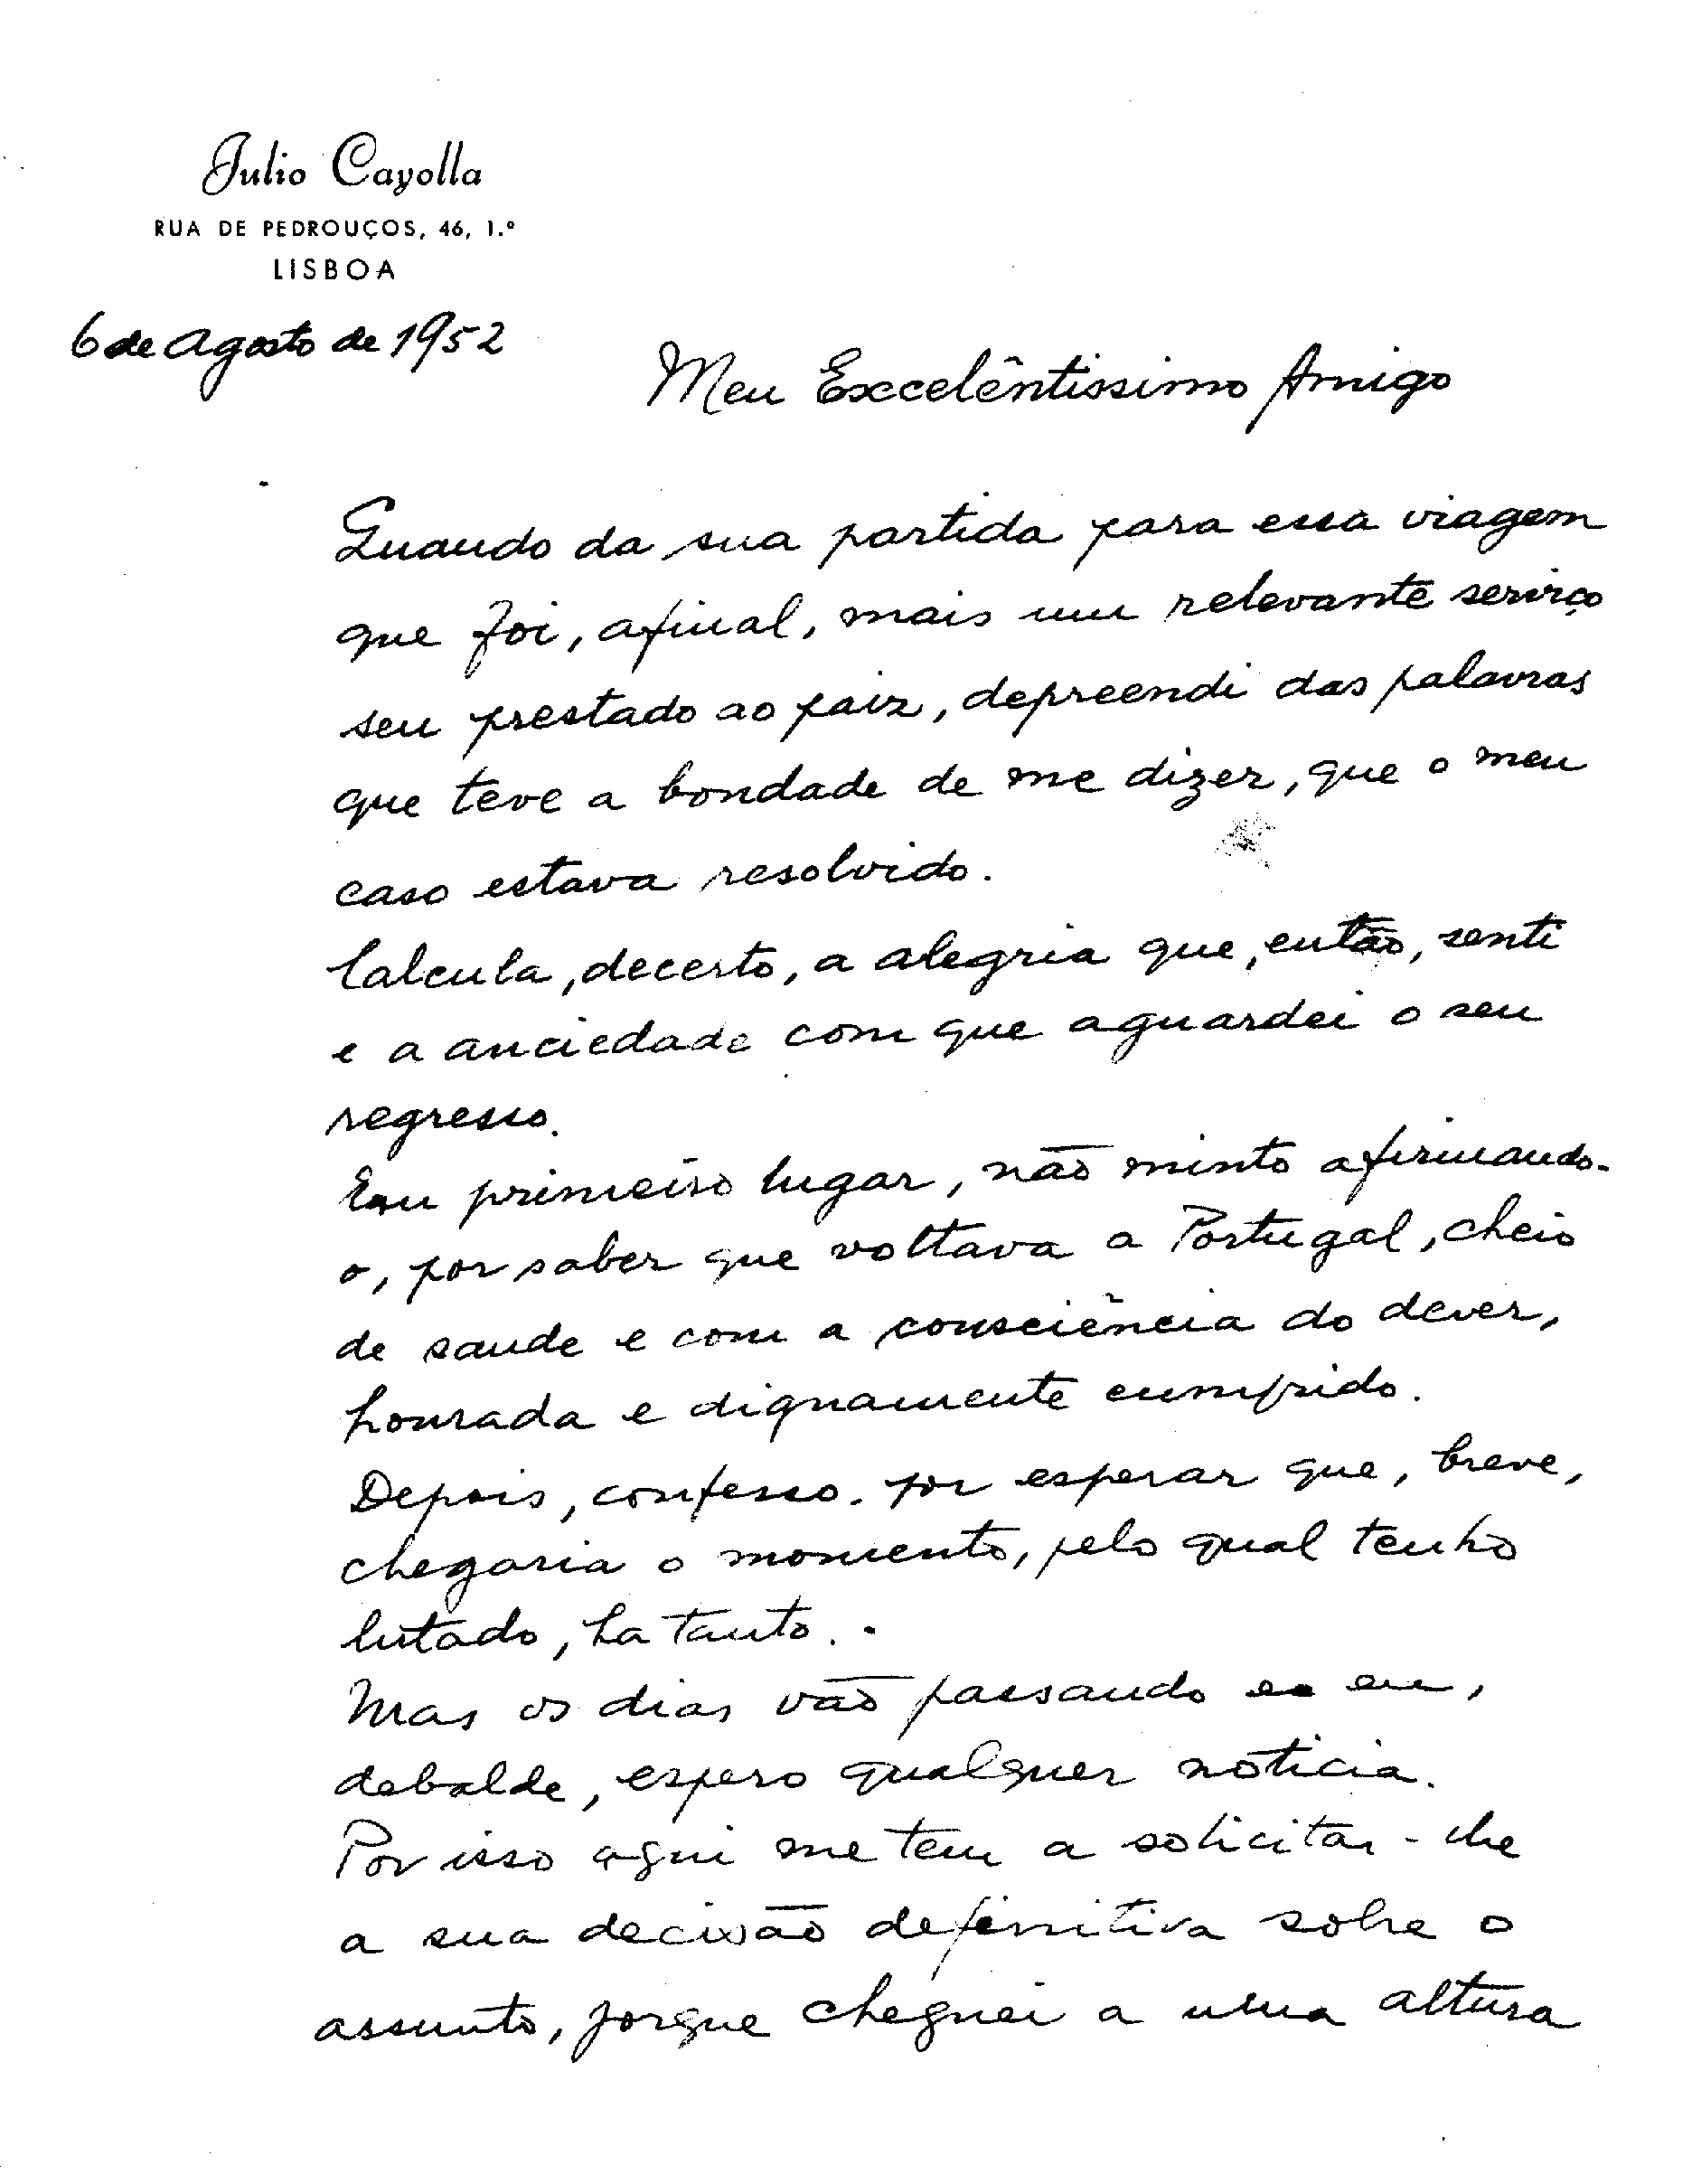 Julio Cayolla
RUA DE PEDROUÇOS, 46, 1.º
LISBOA
6 de Agosto de 1952
Meu Excelêntissimo Amigo
Quando da sua partida para essa viagem
que foi, afinal, mais um relevante serviço
seu prestado ao paiz, depreendi das palavras
que teve a bondade de me dizer, que o meu
caso estava resolvido.
Calcula, decerto, a alegria que, então, senti
e a anciedade com que aguardei o seu
regresso.
Em primeiro lugar, não minto afirmando-
o, por saber que voltava a Portugal, cheio
de saude e com a consciência do dever,
honrada e dignamente cumprido.
Depois, confesso. por esperar que, breve,
chegaria o momento, pelo qual tenho
lutado, ha tanto..
Mas os dias vão passando e eu,
debalde, espero qualquer noticia.
Por isso aqui me tem a solicitar-lhe
a sua decisão definitiva sobre o
assunto, porque cheguei a uma altura